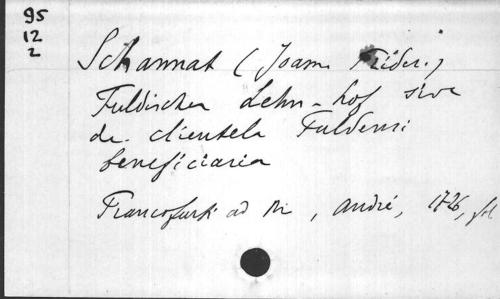 95
12
2
Schannat (Joann. Frider.)
Fuldischer Lehn-hof sive
de clientela Fuldensi
beneficiaria
Francofurti ad M, André, 1726, fol